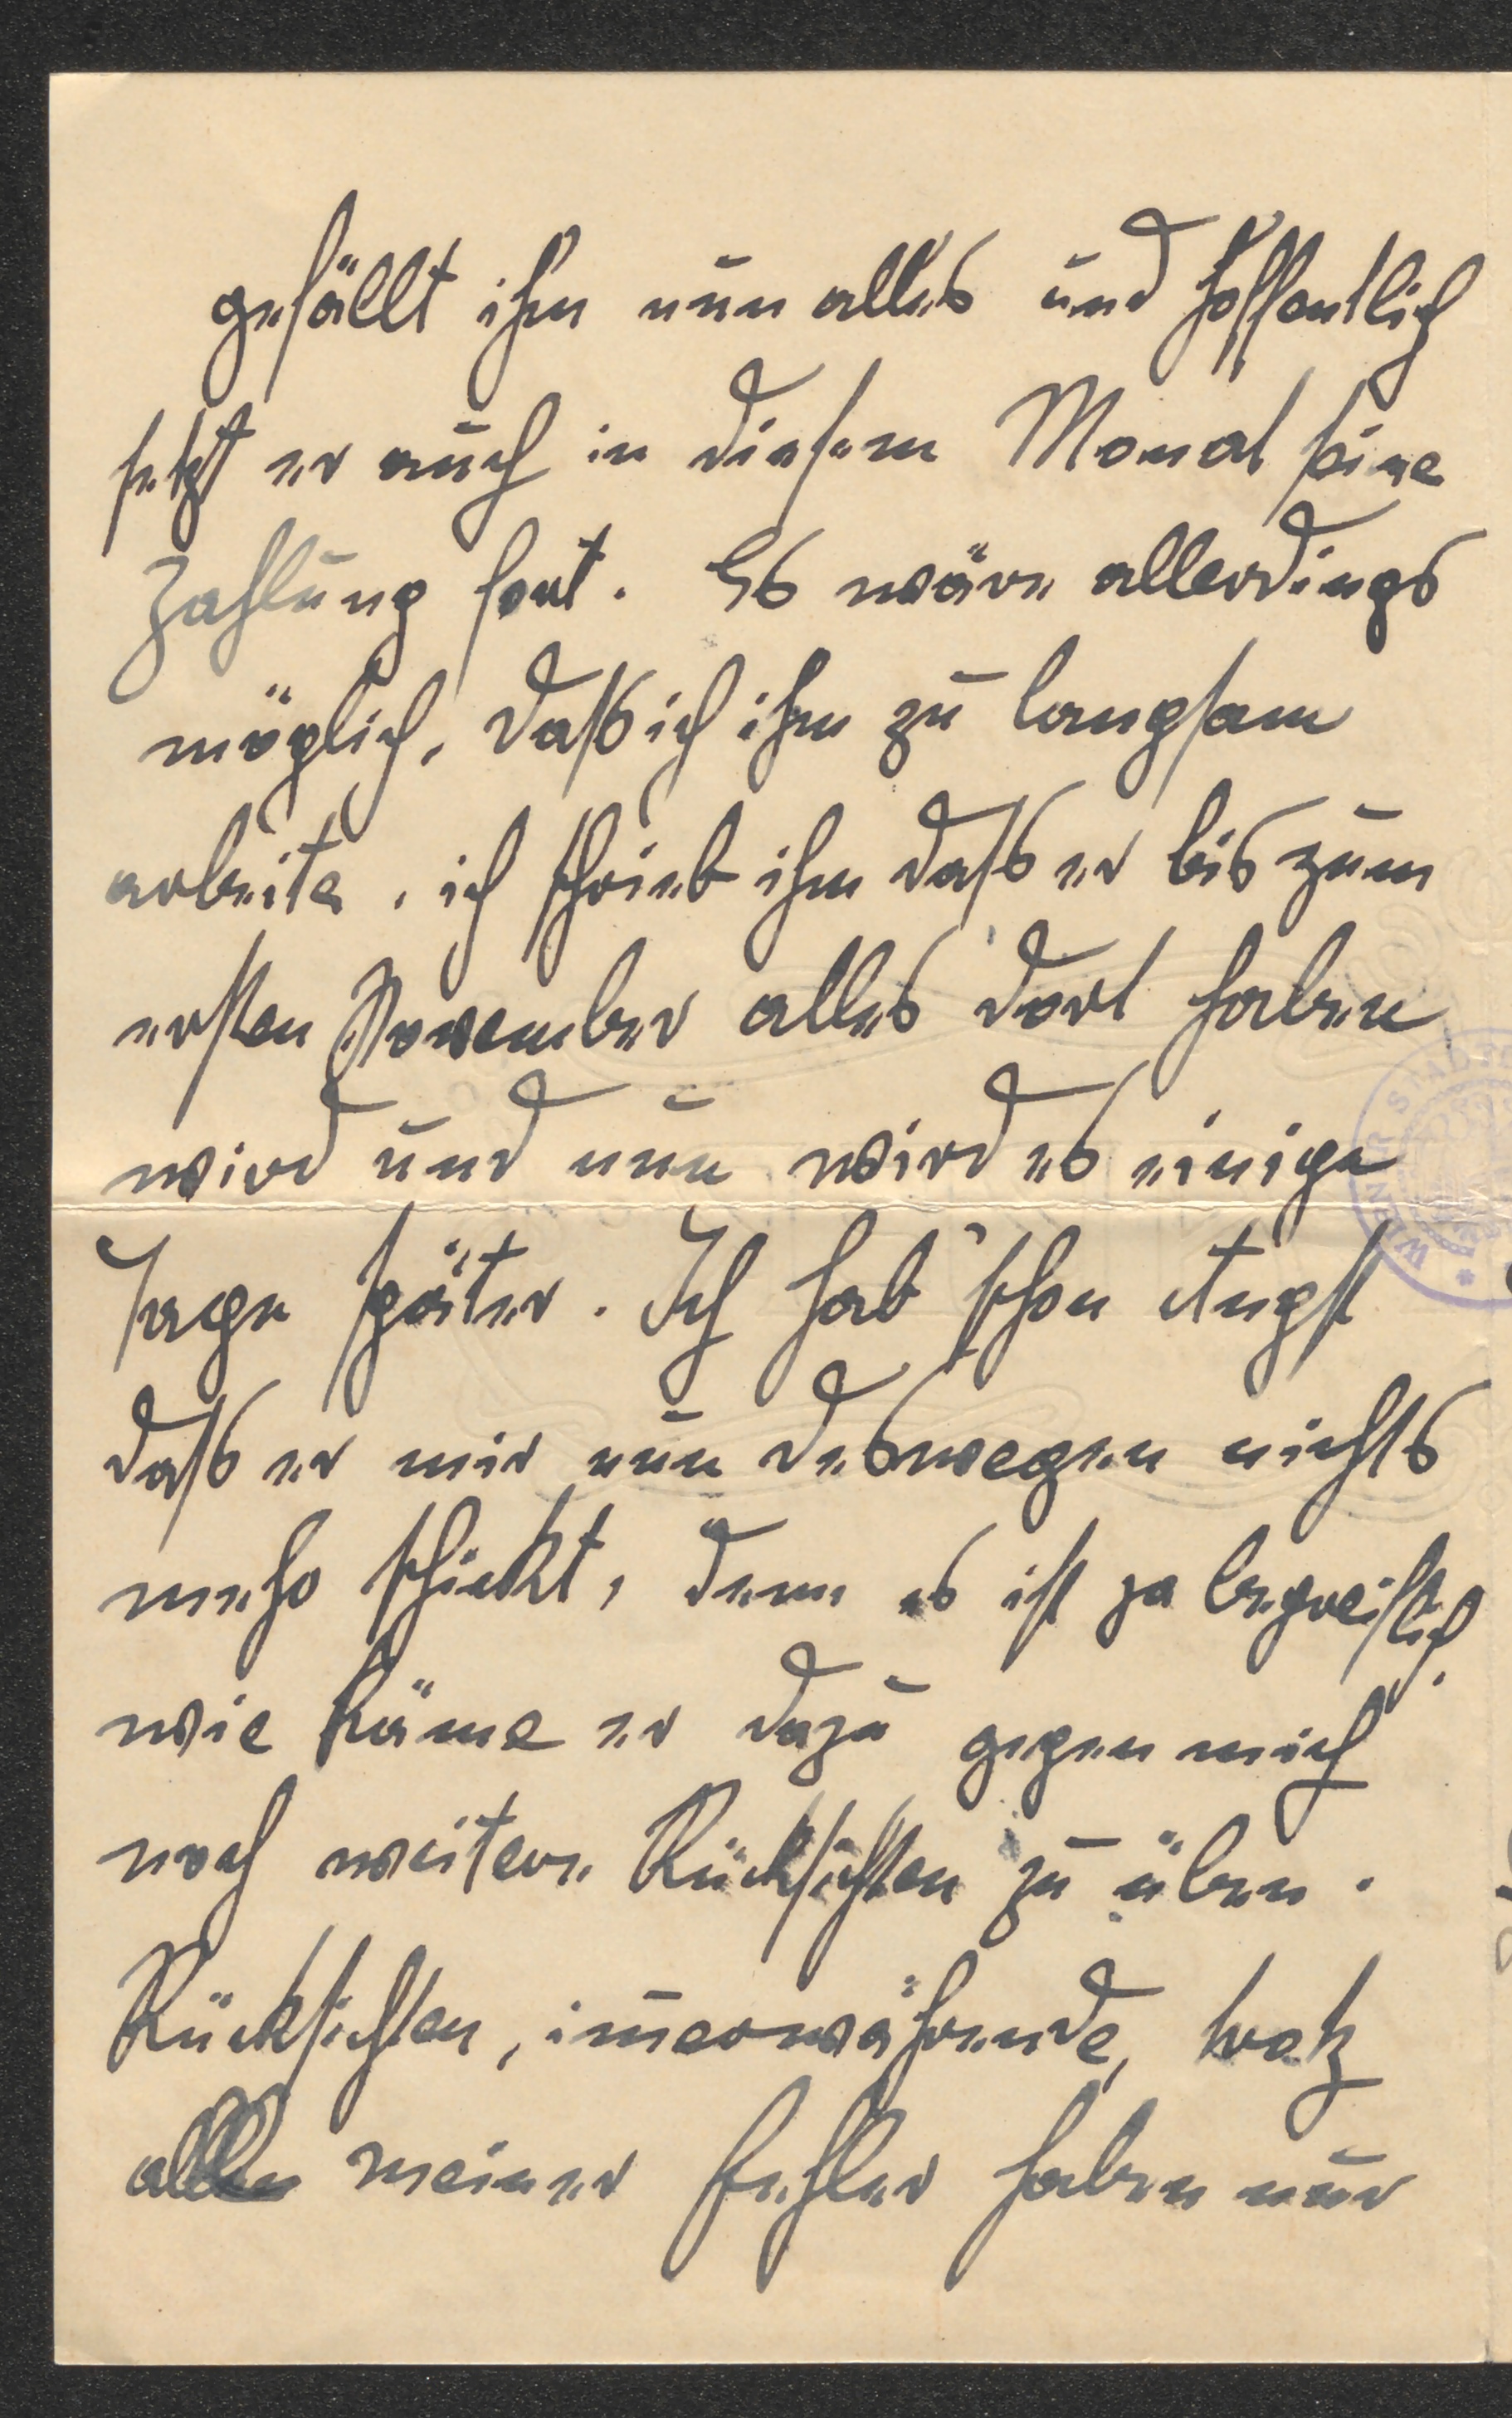 gefällt ihm nun alles und hoffentlich
setzt er auch in diesem Monat seine
Zahlung fort. Es wäre allerdings
möglich, dass ich ihm zu langsam
arbeite, ich schrieb ihm dass er bis zum
ersten November alles dort haben
wird und nun wird es einige
Tage später. Ich hab' schon Angst
dass er mir nun deswegen nichts
mehr schickt, denn es ist ja begreiflich,
wie käme er dazu gegen mich
noch weitere Rücksichten zu üben.
Rücksichten, im̄erwährende, trotz
aller meiner Fehler haben nur